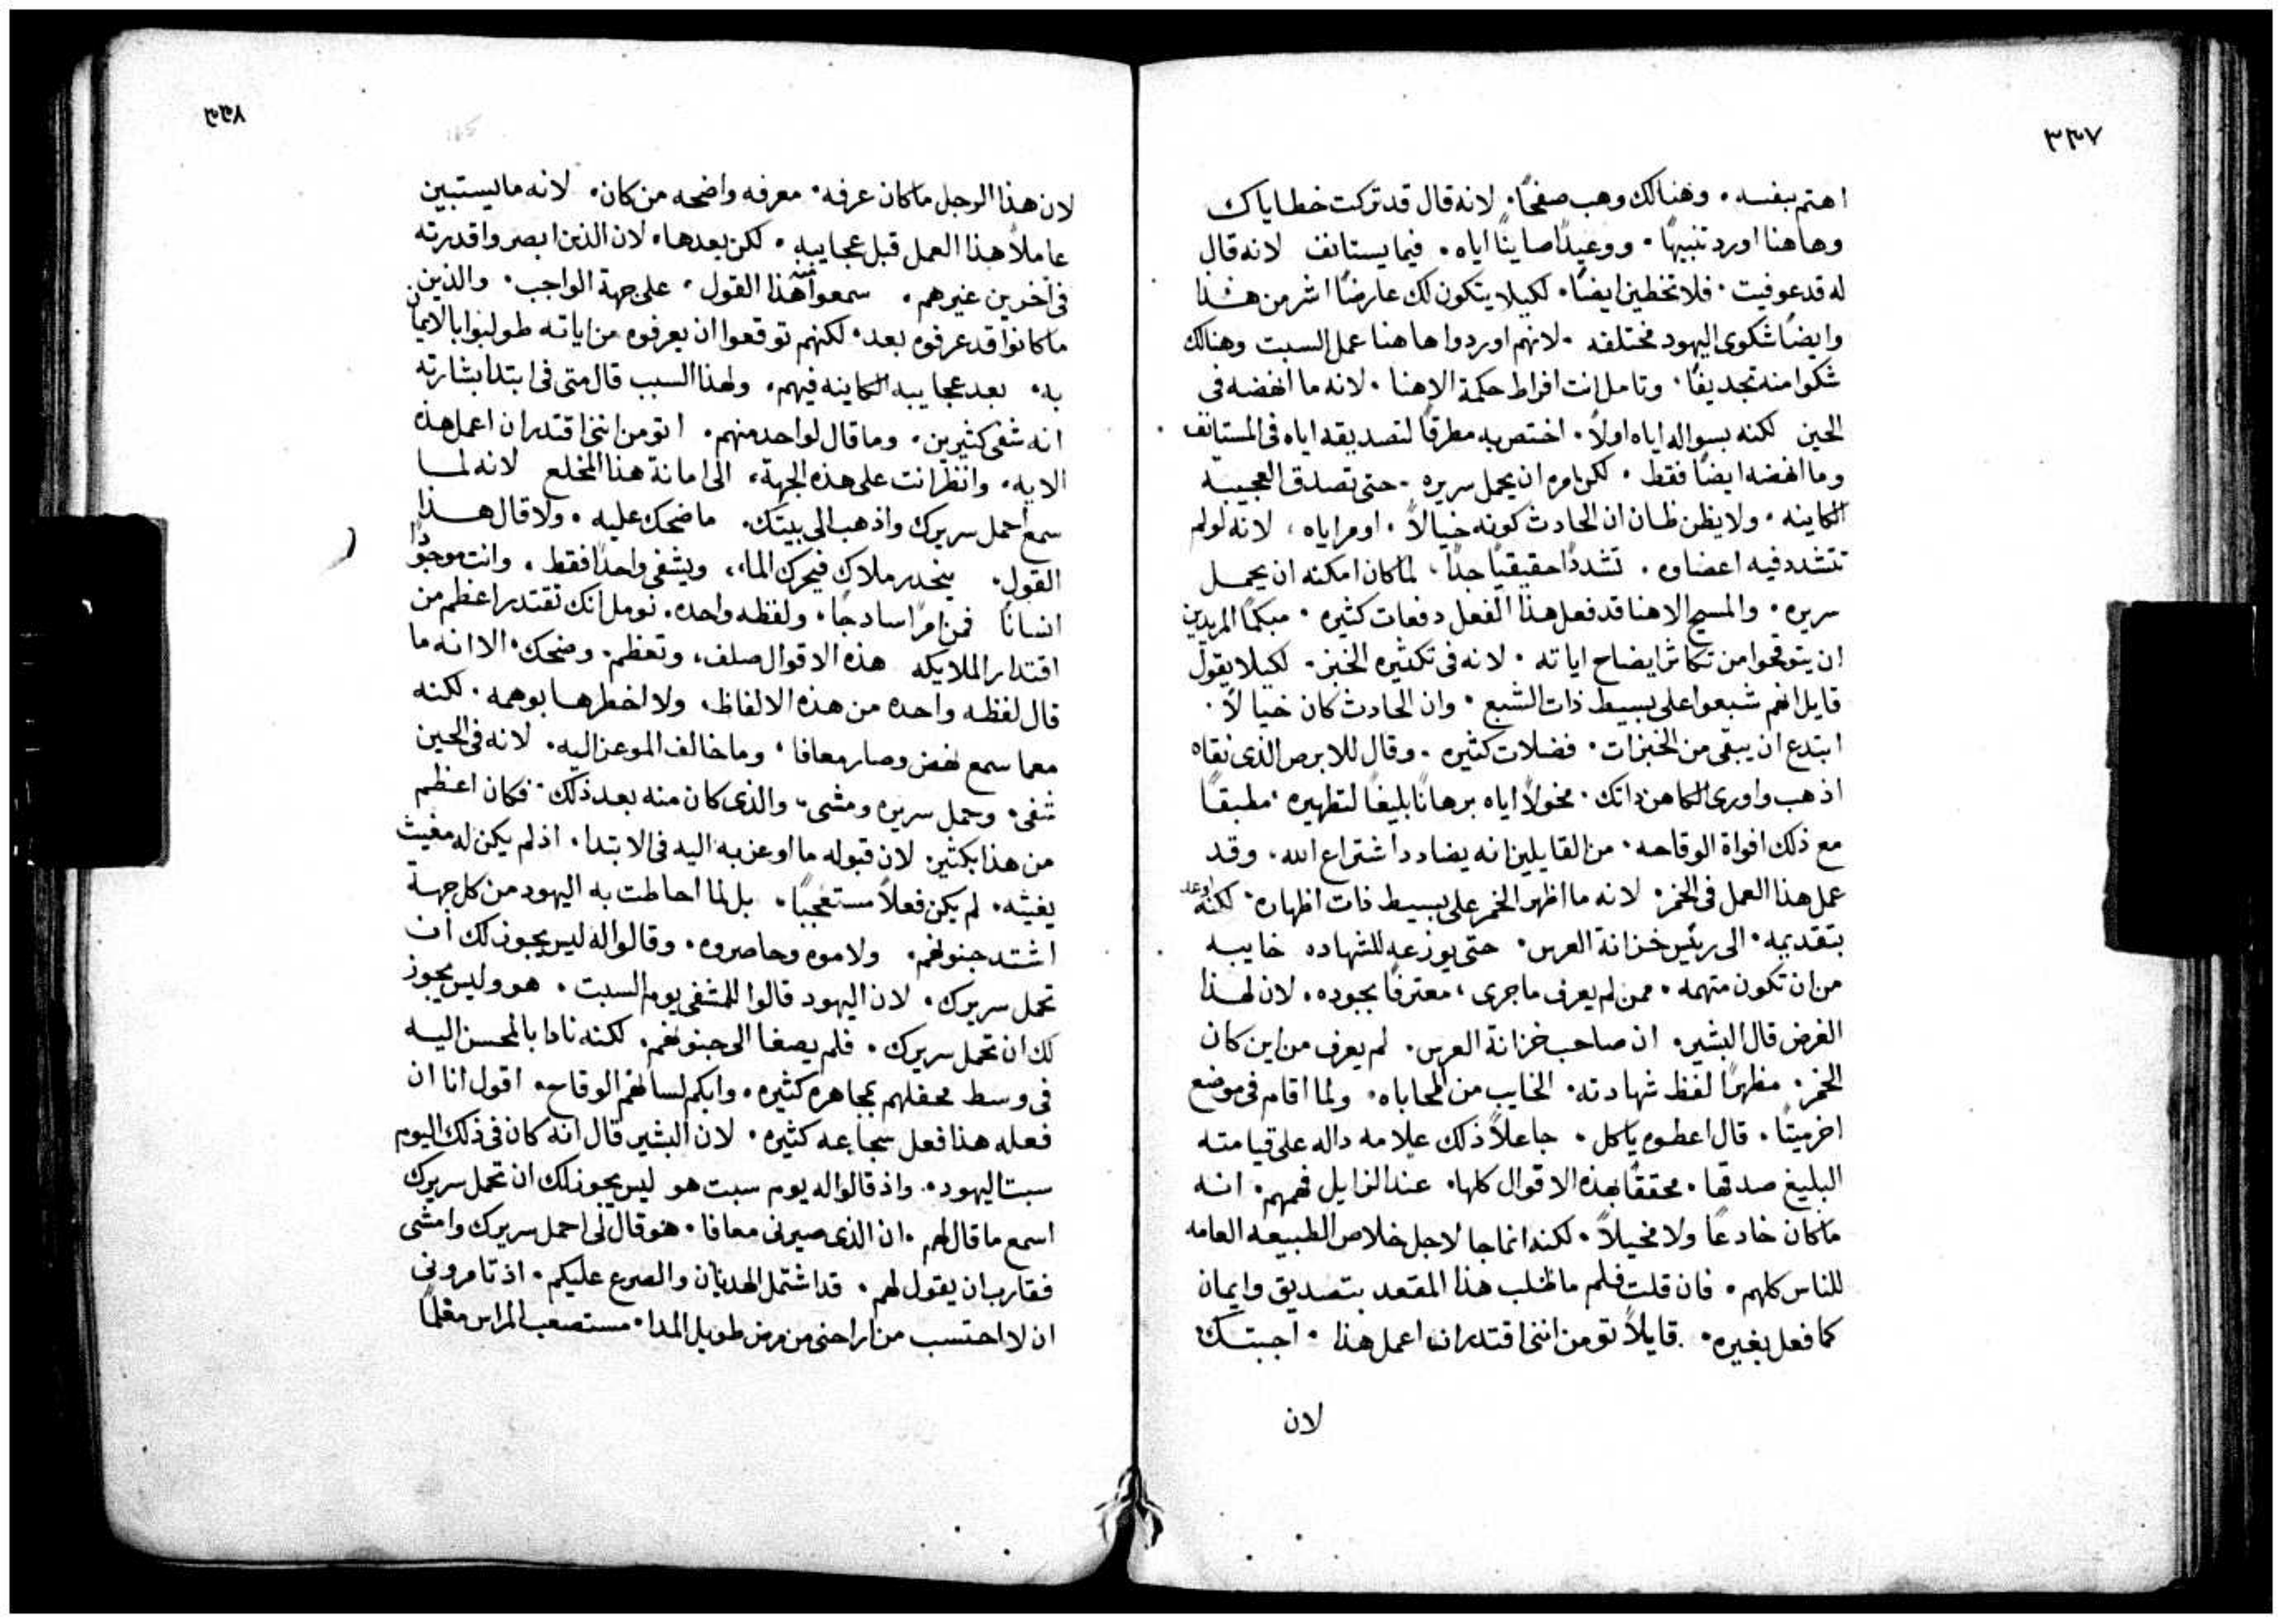 ٣٣٧
اهتم بنفسه. وهنالك وهب صفحًا. لانه قال قد تركت خطاياك
وهاهنا اورد تنبيهًا. ووعيدًا صاينًا اياه. فيما يستانف لانه قال
له قد عوفيت. فلا تخطين ايضًا. لكيلا يتكون لك عارضًا اشر من هذا
وايضًا شكوى اليهود مختلفه. لانهم اوردوا هاهنا عمل السبت وهنالك
شكوا منه تجديفًا. وتامل انت افراط حكمة الاهنا. لانه ما انهضه فى
الحين لكنه بسواله اياه اولاً. اختص به مطرقًا لتصديقه اياه فى المستانف
وما انهضه ايضًا فقط. لكن امره ان يحمل سريره. حتى تصدق العجيبه
الكاينه. ولا يظن ظان ان الحادث كونه خيالاً. اومراياه، لانه لو لم
تتشدد فيه اعضاوه. تشددًا حقيقيًا جدًا. لما كان امكنه ان يحمل
سريره. والمسيح الاهنا قد فعل هذا الفعل دفعات كثيره. مبكمًا المريدين
ان يتوقحوا من تكاثر ايضاح اياته. لانه فى تكثيره الخبز. لكيلا يقول
قايل انهم شبعوا على بسيط ذات الشبع. وان الحادث كان خيالاً.
ابتدع ان يبقى من الخبزات. فضلات كثيره. وقال للابرص الذى نقاه
اذهب واورى الكاهن ذاتك. مخولاً اياه برهانًا بليغًا لتطهيره. مطبقًا
مع ذلك افواة الوقاحه. من القايلين انه يضادد اشتراع الله. وقد
عمل هذا العمل فى الخمر. لانه ما اظهر الخمر على بسيط ذات اظهاره. لكنه اوعز
بتقديمه. الى رئيس خزانة العرس. حتى يوزعه للشهاده خايبه
من ان تكون متهمه. ممن لم يعرف ما جرى، معترفًا بجوده. لان لهذا
الغرض قال البشير. ان صاحب خزانة العرس. لم يعرف من اين كان
الخمر. مظهرًا لفظ شهادته. الخايب من المحاباه. ولما اقام فى موضع
اخر ميتًا. قال اعطوه ياكل. جاعلاً ذلك علامه داله على قيامته
البليغ صدقها. محققًا بهذه الاقوال كلها. عند الزايل فهمهم. انه
ما كان خادعًا ولا مخيلاً. لكنه انما جا لاجل خلاص الطبيعه العامه
للناس كلهم. فان قلت فلم ما طلب هذا المقعد بتصديق وايمان
كما فعل بغيره. قايلاً تومن اننى اقتدر ان اعمل هذا. اجبتك
لان
٣٣٨
لان هذا الرجل ما كان عرفه. معرفه واضحه من كان. لانه ما يستبين
عاملاً هذا العمل قبل عجايبه. لكن بعدها. لان الذين ابصروا قدرته
فى اخرين غيرهم. سمعوا منه هذا القول. على جهة الواجب. والذين
ما كانوا قد عرفوه بعد. لكنهم توقعوا ان يعرفوه من اياته طولبوا بالايمان
به. بعد عجايبه الكاينه فيهم. ولهذا السبب قال متى فى ابتدا بشارته
انه شفى كثيرين. وما قال لواحد منهم. اتومن اننى اقتدر ان اعمل هذه
الايه. وانظر انت على هذه الجهة. الى امانة هذا المخلع لانه لما
سمع احمل سريرك واذهب الى بيتك. ما ضحك عليه. ولا قال هذا
القول. ينحدر ملاك فيحرك الماء، ويشفى واحدًا فقط. وانت موجودًا
انسانًا فمن امرًا ساذجًا. ولفظه واحده. نومل انك تقتدر اعظم من
اقتدار الملايكه هذه الاقوال صلف، وتعظم. وضحك. الا انه ما
قال لفظه واحده من هذه الالفاظ. ولا اخطرها بوهمه. لكنه
معما سمع نهض وصار معافا. وما خالف الموعز اليه. لانه فى الحين
شفى. وحمل سريره ومشى. والذى كان منه بعد ذلك. فكان اعظم
من هذا بكثير. لان قبوله ما اوعز به اليه فى الابتدا. اذ لم يكن له مغيث
يغيثه. لم يكن فعلاً مستعجبًا. بل لما احاطت به اليهود من كل جهة
اشتد جنونهم. ولاموه وحاصروه. وقالوا له ليس يجوز لك ان
تحمل سريرك. لان اليهود قالوا للمشفى يوم السبت. هو وليس يجوز
لك ان تحمل سريرك. فلم يصغا الى جنونهم. لكنه نادا بالمحسن اليه
فى وسط محفلهم بمجاهره كثيره. وابكم لسانهم الوقاح. اقول انا ان
فعله هذا فعل شجاعه كثيره. لان البشير قال انه كان فى ذلك اليوم
سبت اليهود. واذ قالوا له يوم سبت هو ليس يجوز لك ان تحمل سريرك
اسمع ما قال لهم. ان الذى صيرنى معافا. هو قال لى احمل سريرك وامشى
فقارب ان يقول لهم. قد اشتمل الهديان والصرع عليكم. اذ تامرونى
ان لا احتسب من اراحنى من مرض طويل المدا. مستصعب المراس معلمًا